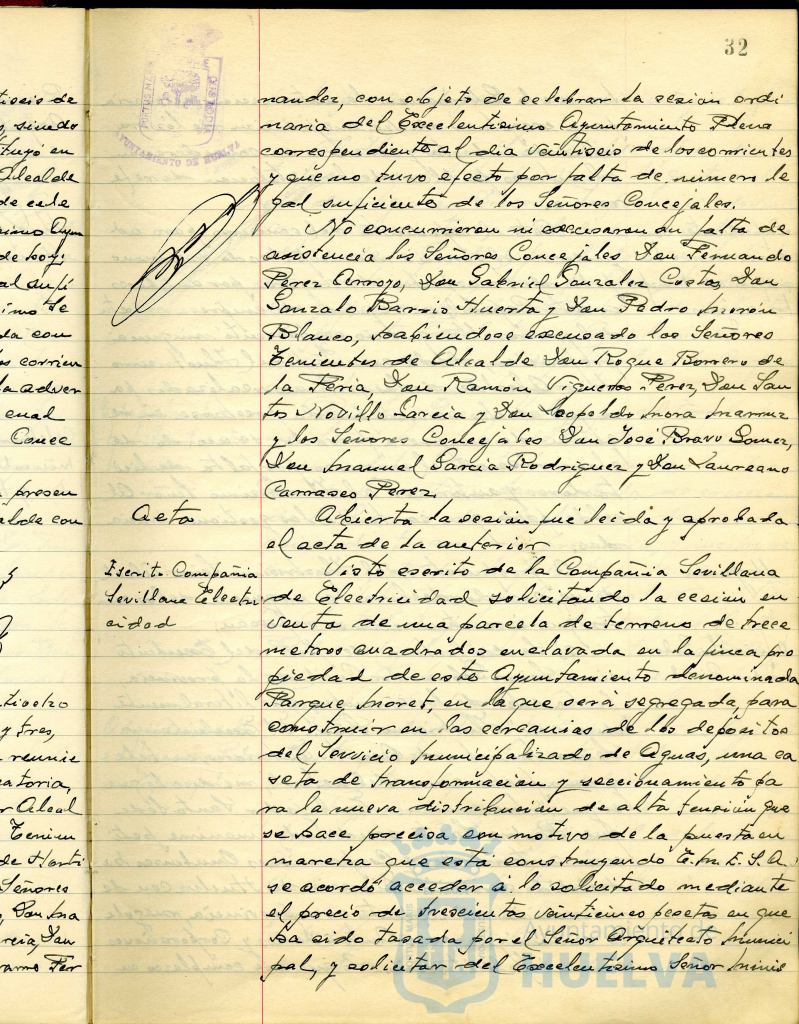 32
PORTUS MARIS
CUSTODIA
AYUNTAMIENTO DE HUELVA
nandez, con objeto de celebrar la sesión ordi
naria del Excelentísimo Ayuntamiento Pleno
correspondiente al dia veintiseis de los corrientes
y que no tuvo efecto por falta de número le
gal suficiente de los Señores Concejales.
No concurrieron ni excusaron su falta de
asistencia los Señores Concejales Don Fernando
Perez Arroyo, Don Gabriel Gonzalez Costas, Don
Gonzalo Barrio Huerta y Don Pedro Morón
Blanco, habiendose excusado los Señores
Tenientes de Alcalde Don Roque Borrero de
la Feria, Don Ramón Vigueras Perez, Don San
tos Novillo Garcia y Don Leopoldo Mora
y los Señores Concejales Don José Bravo Gomez,
Don Manuel Garcia Rodriguez y Don Laureano
Carrasco Perez.
Acta
Abierta la sesión fué leida y aprobada
el acta de la anterior
Escrito Compañia
Sevillana Electri
cidad
Visto escrito de la Compañia Sevillana
de Electricidad solicitando la cesión en
venta de una parcela de terreno de trece
metros cuadrados enclavada en la finca pro
piedad de este Ayuntamiento denominada
Parque Moret, en la que será segregada para
construir en las cercanias de los depósitos
del Servicio Municipalizado de Aguas, una ca
seta de transformación y seccionamiento pa
ra la nueva distribución de alta tensión que
se hace precisa con motivo de la puesta en
marcha que está construyendo E.M.E.S.A.
se acordó acceder á lo solicitado mediante
el precio de trescientas veinticinco pesetas en que
ha sido tasada por el Señor Arquitecto Munici
pal, y solicitar del Excelentísimo Señor Minis
Ayuntamiento de
HUELVA
tiseis de
sindo
tuyó en
Alcalde
de este
simo Ayun
de hoy
al sufi
imo Se
da con
os corrien
la adver
cual
Conce
presen
alde con
y tres,
reunie
catoria,
r Alcal
Tenien
Señores
rcia, Don